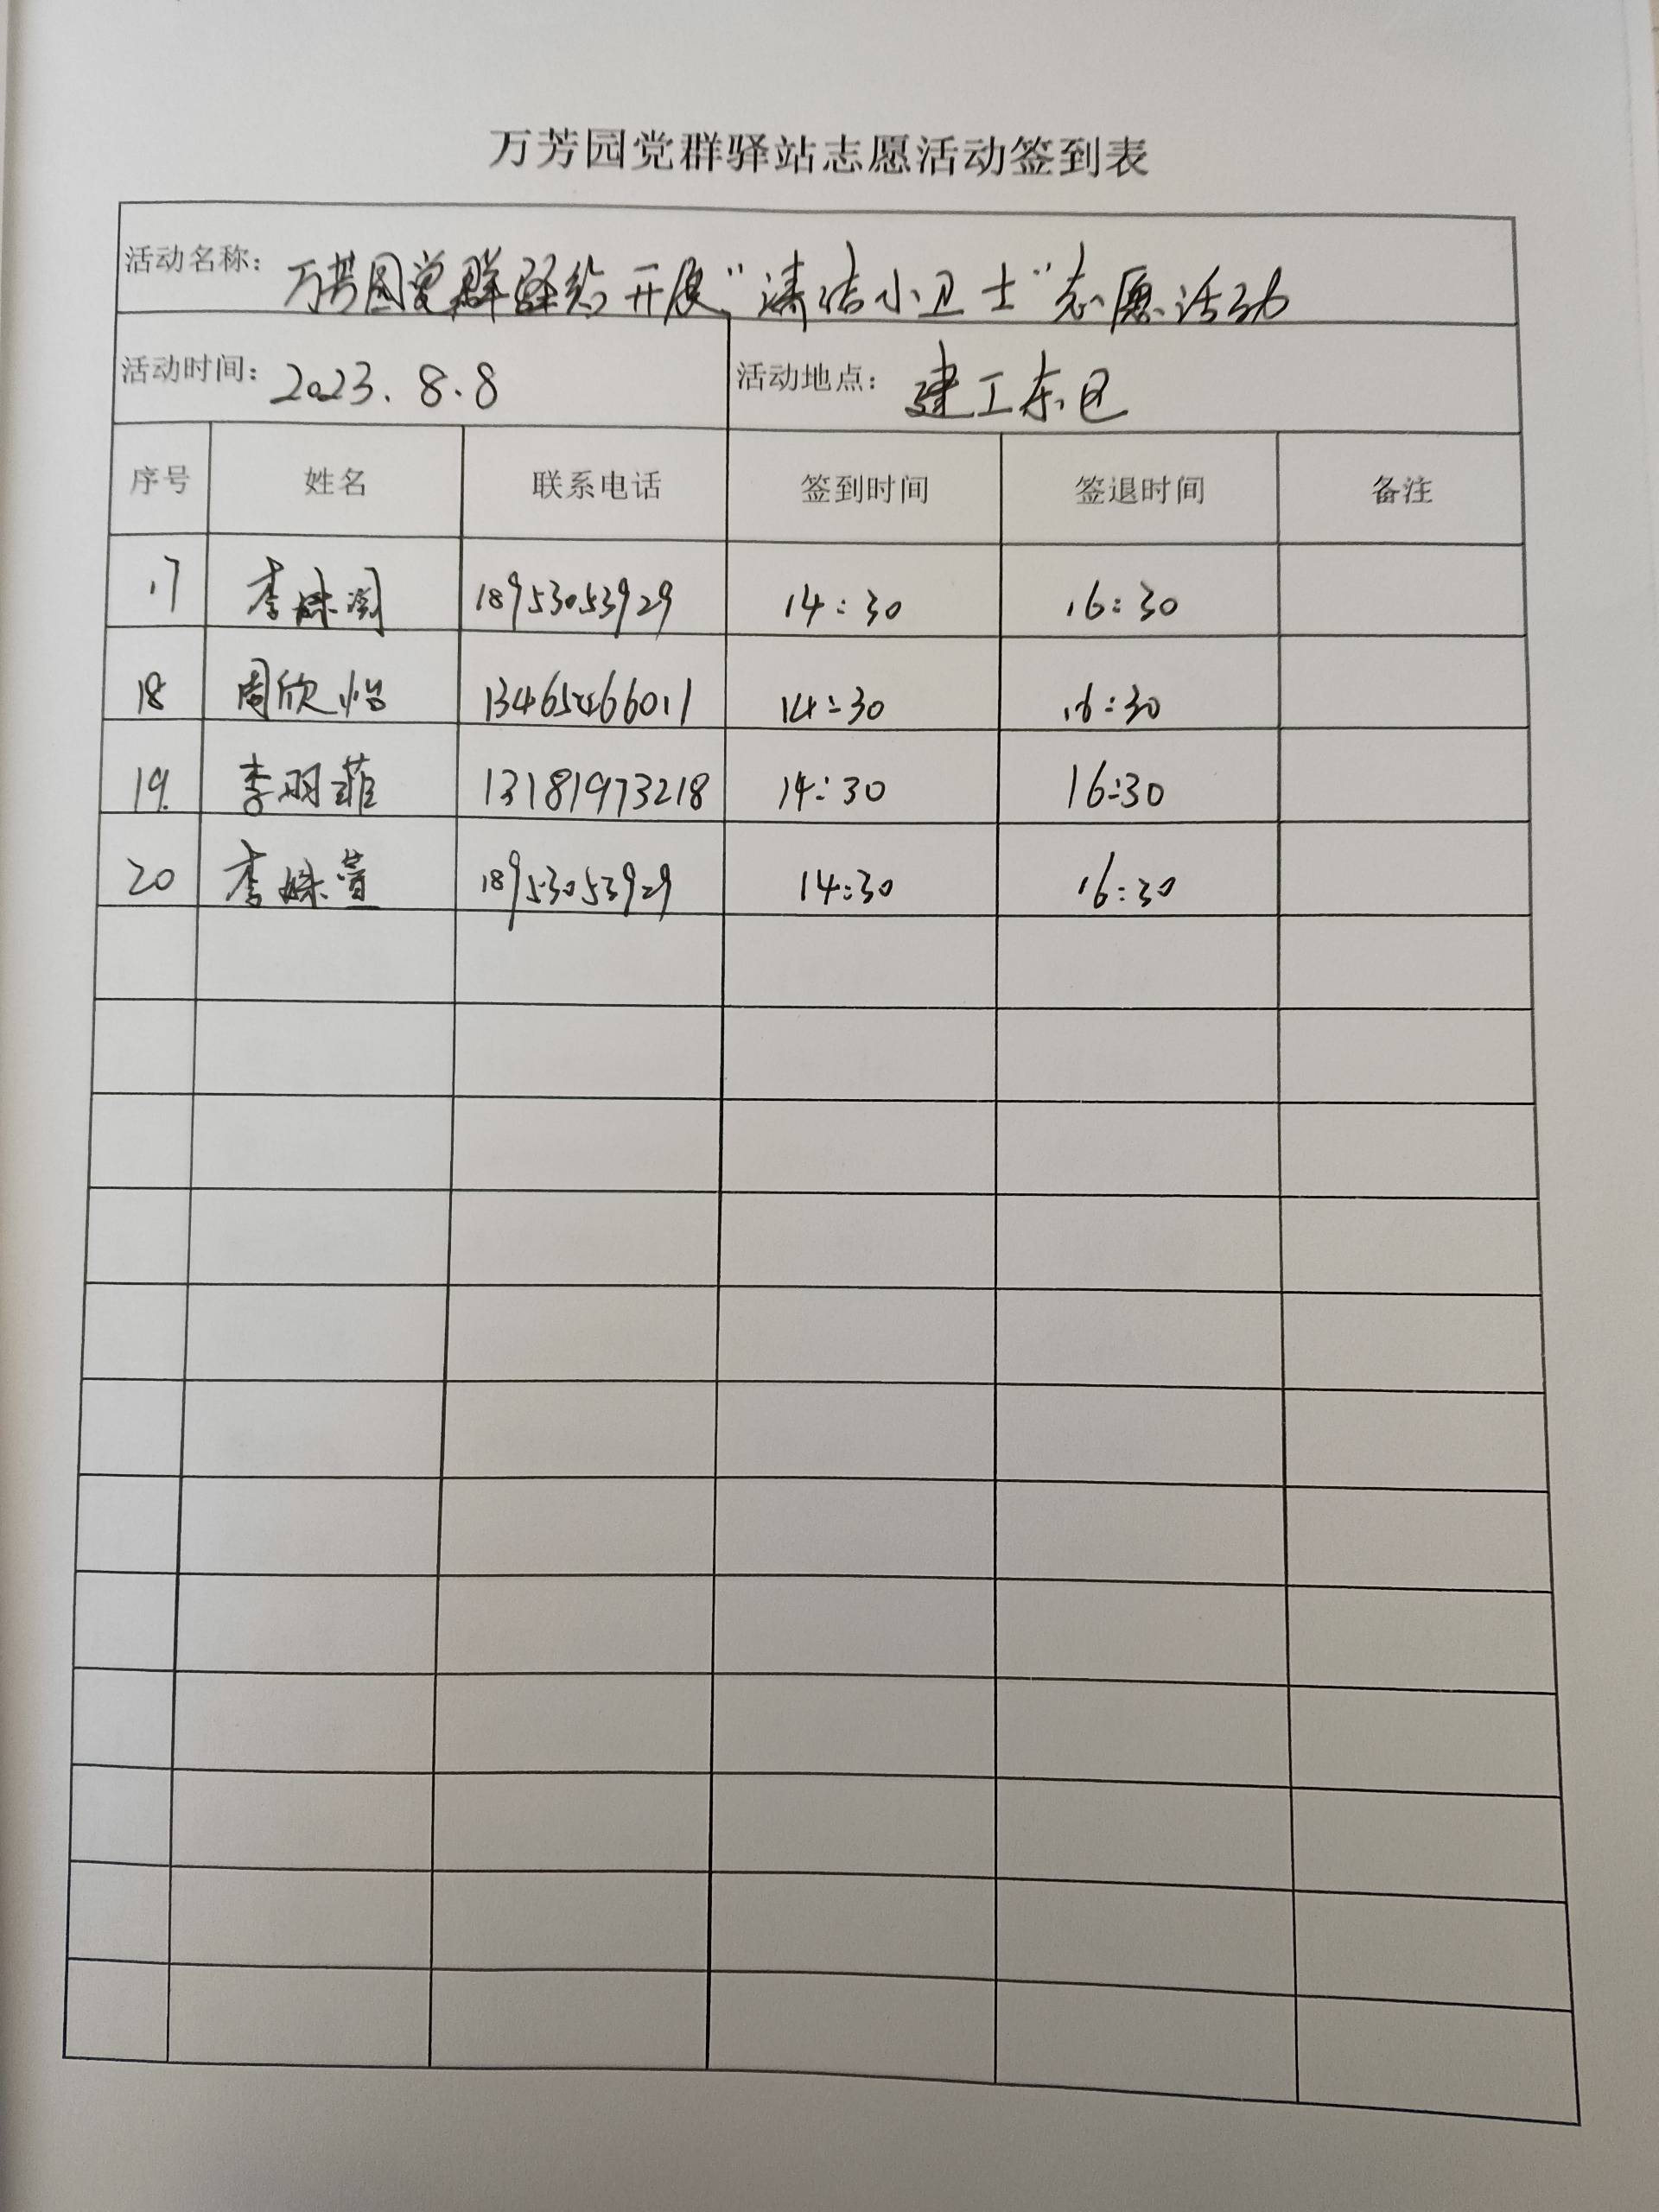 万芳园党群驿站志愿活动签到表
活动名称：万芳园党群驿站开展“清洁小卫士”志愿活动
活动时间：2023.8.8 活动地点：建工东区
序号 姓名 联系电话 签到时间 签退时间 备注
17 李姝润 18953053929 14:30 16:30
18 周欣怡 13465466011 14:30 16:30
19. 李羽菲 13181973218 14:30 16:30
20 李姝萱 18953053929 14:30 16:30